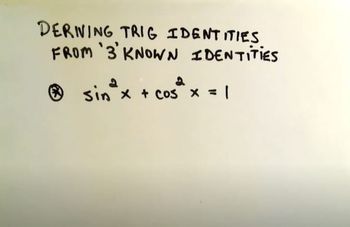 DERIVING TRIG IDENTITIES
FROM '3' KNOWN IDENTITIES
⊛ sin²x + cos²x = 1